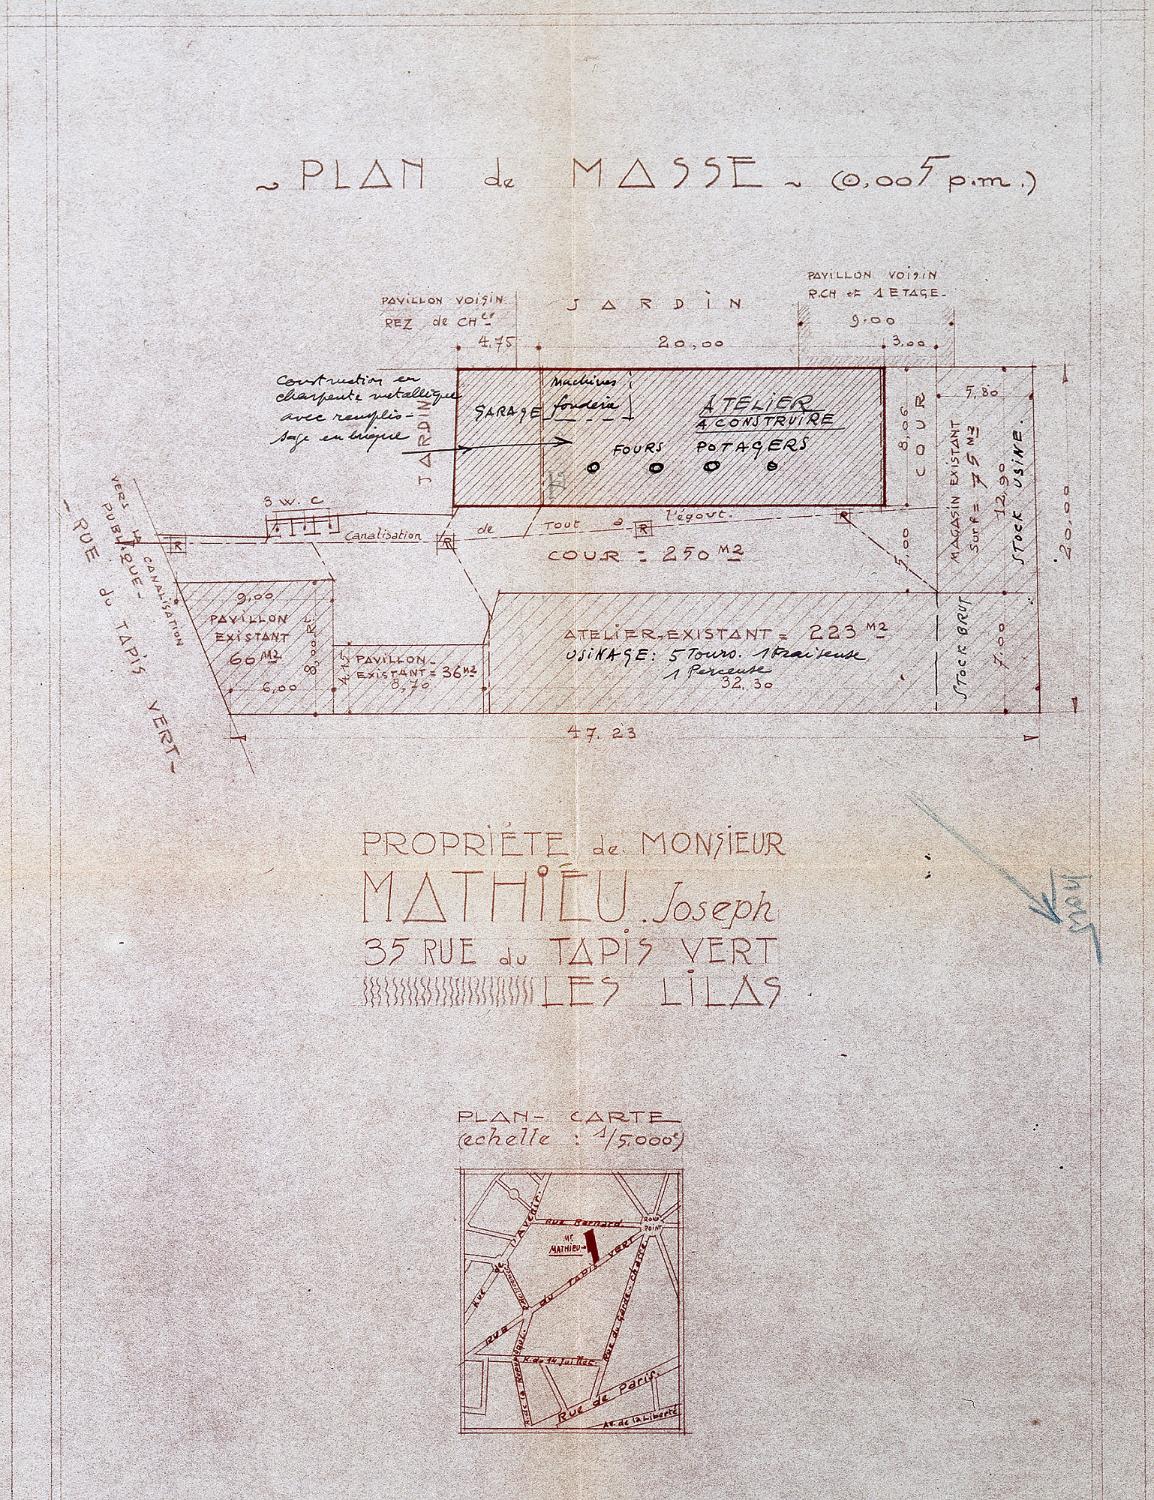 ~ PLAN de MASSE ~ (0,005 p.m.)
PAVILLON VOISIN
REZ de CH
JARDIN
PAVILLON VOISIN
R.CH et 1 ETAGE.
9.00
4,75
20,00
3,00
Construction en
charpente metallique
avec remplis-
sage en brique
JARDIN
GARAGE
Machines
fonderie
ATELIER
A CONSTRUIRE
FOURS POTAGERS
8,06
COUR
5,80
MAGASIN EXISTANT
Surf = 75 M2
12,90
STOCK USINE.
20,00
VERS LA CANALISATION
PUBLIQUE-
-RUE du TAPIS VERT-
3 W.C
R
Canalisation
R
de TOUT à l'égout.
R
R
COUR = 250 M2
5,00
9,00
PAVILLON
EXISTANT
60 M2
6,00
4,15
PAVILLON-
EXISTANT = 36 M2
8,70
ATELIER-EXISTANT = 223 M2
USINAGE: 5 Tours. 1 Fraiseuse
1 Perceuse
32.30
STOCK BRUT
7.00
47.23
PROPRIÉTE de MONSIEUR
MATHIEU. Joseph
35 RUE du TAPIS VERT
LES LILAS
PLAN- CARTE
(echelle : 1/5.000e)
Rue de l'Avenir.
Rue Bernard
ROND
POINT
Mr
MATHIEU
Rue du TAPIS VERT
Rue du Garde-Chasse
R. du 14 Juillet.
Rue de Paris.
Av. de la Liberté